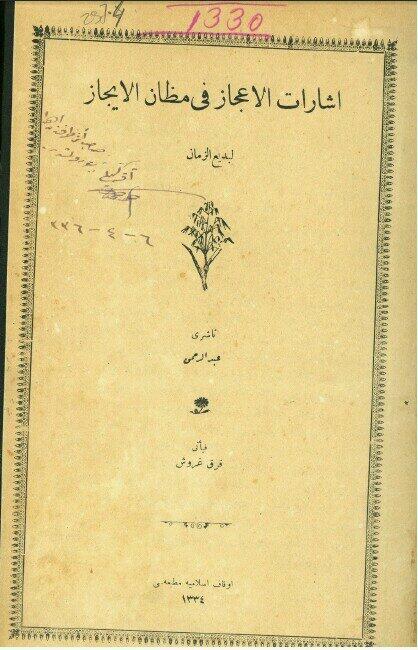 1330
اشارات الاعجاز فى مظان الايجاز
لبديع الزمان
٦ - ٤ - ٣٣٦
ناشرى
عبدالرحمن
فيأتى
قرق غروش
اوقاف اسلاميه مطبعه سى
١٣٣٤